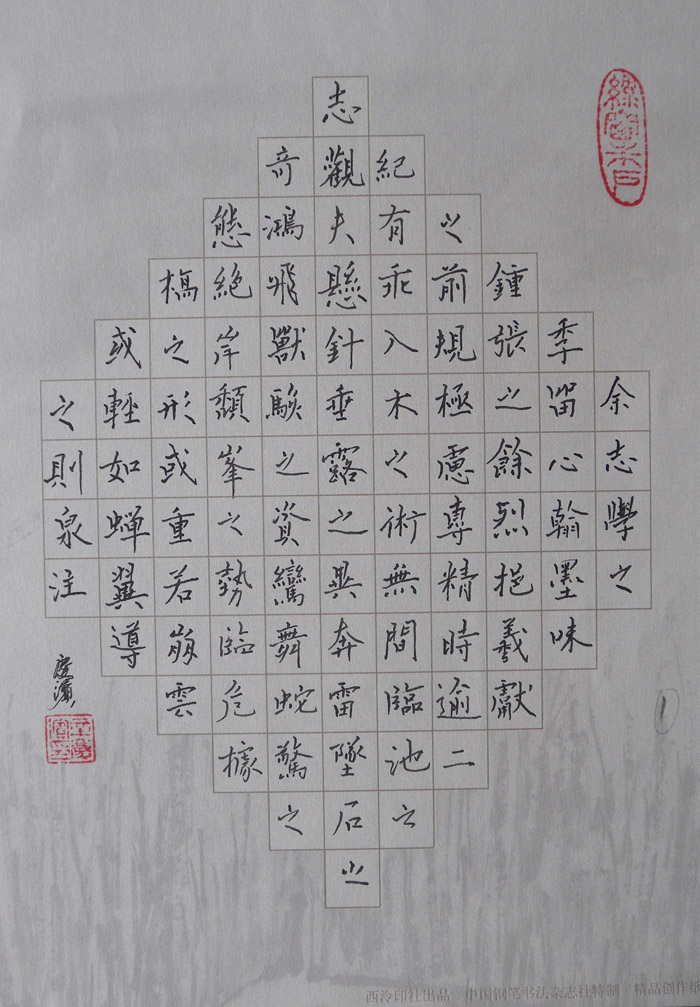 余志學之
秊留心翰墨味
鍾張之餘烈挹羲獻
之前規極慮專精時逾二
紀有乖入木之術無間臨池之
志觀夫懸針垂露之異奔雷墜石之
奇鴻飛獸駭之資鸞舞蛇驚之
態絕岸頹峯之勢臨危據
槁之形或重若崩雲
或輕如蟬翼導
之則泉注
1
西泠印社出品 中国钢笔书法杂志社特制·精品创作纸